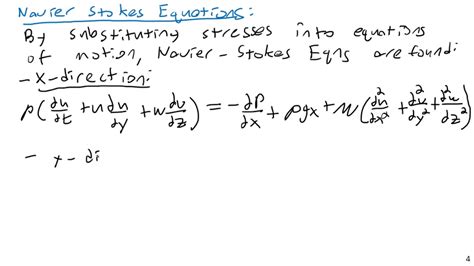 Navier Stokes Equations:
By substituting stresses into equations
of motion, Navier-Stokes Eqns are found:
-X-direction:
ρ(∂u/∂t + u ∂u/∂y + w ∂u/∂z) = -∂P/∂x + ρgx + μ(∂²u/∂x² + ∂²u/∂y² + ∂²u/∂z²)
- y-di
4